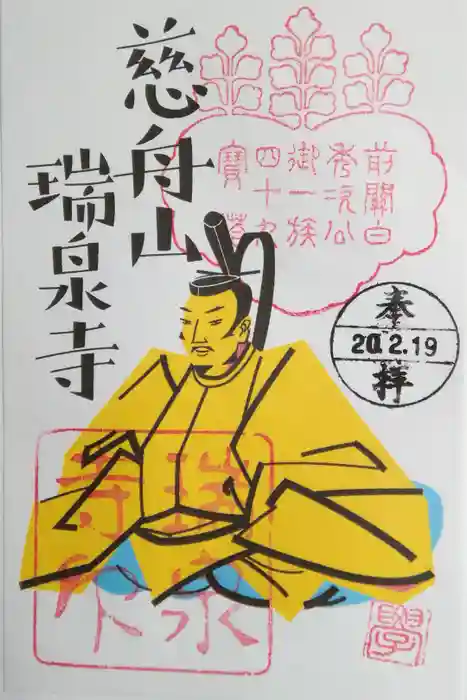 慈舟山
瑞泉寺
前關白
秀次公
御一族
四十九
寶塔
奉
拝
瑞泉
寺印